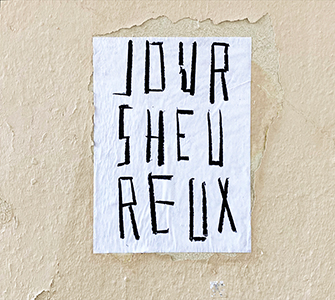 JOUR
SHEU
REUX